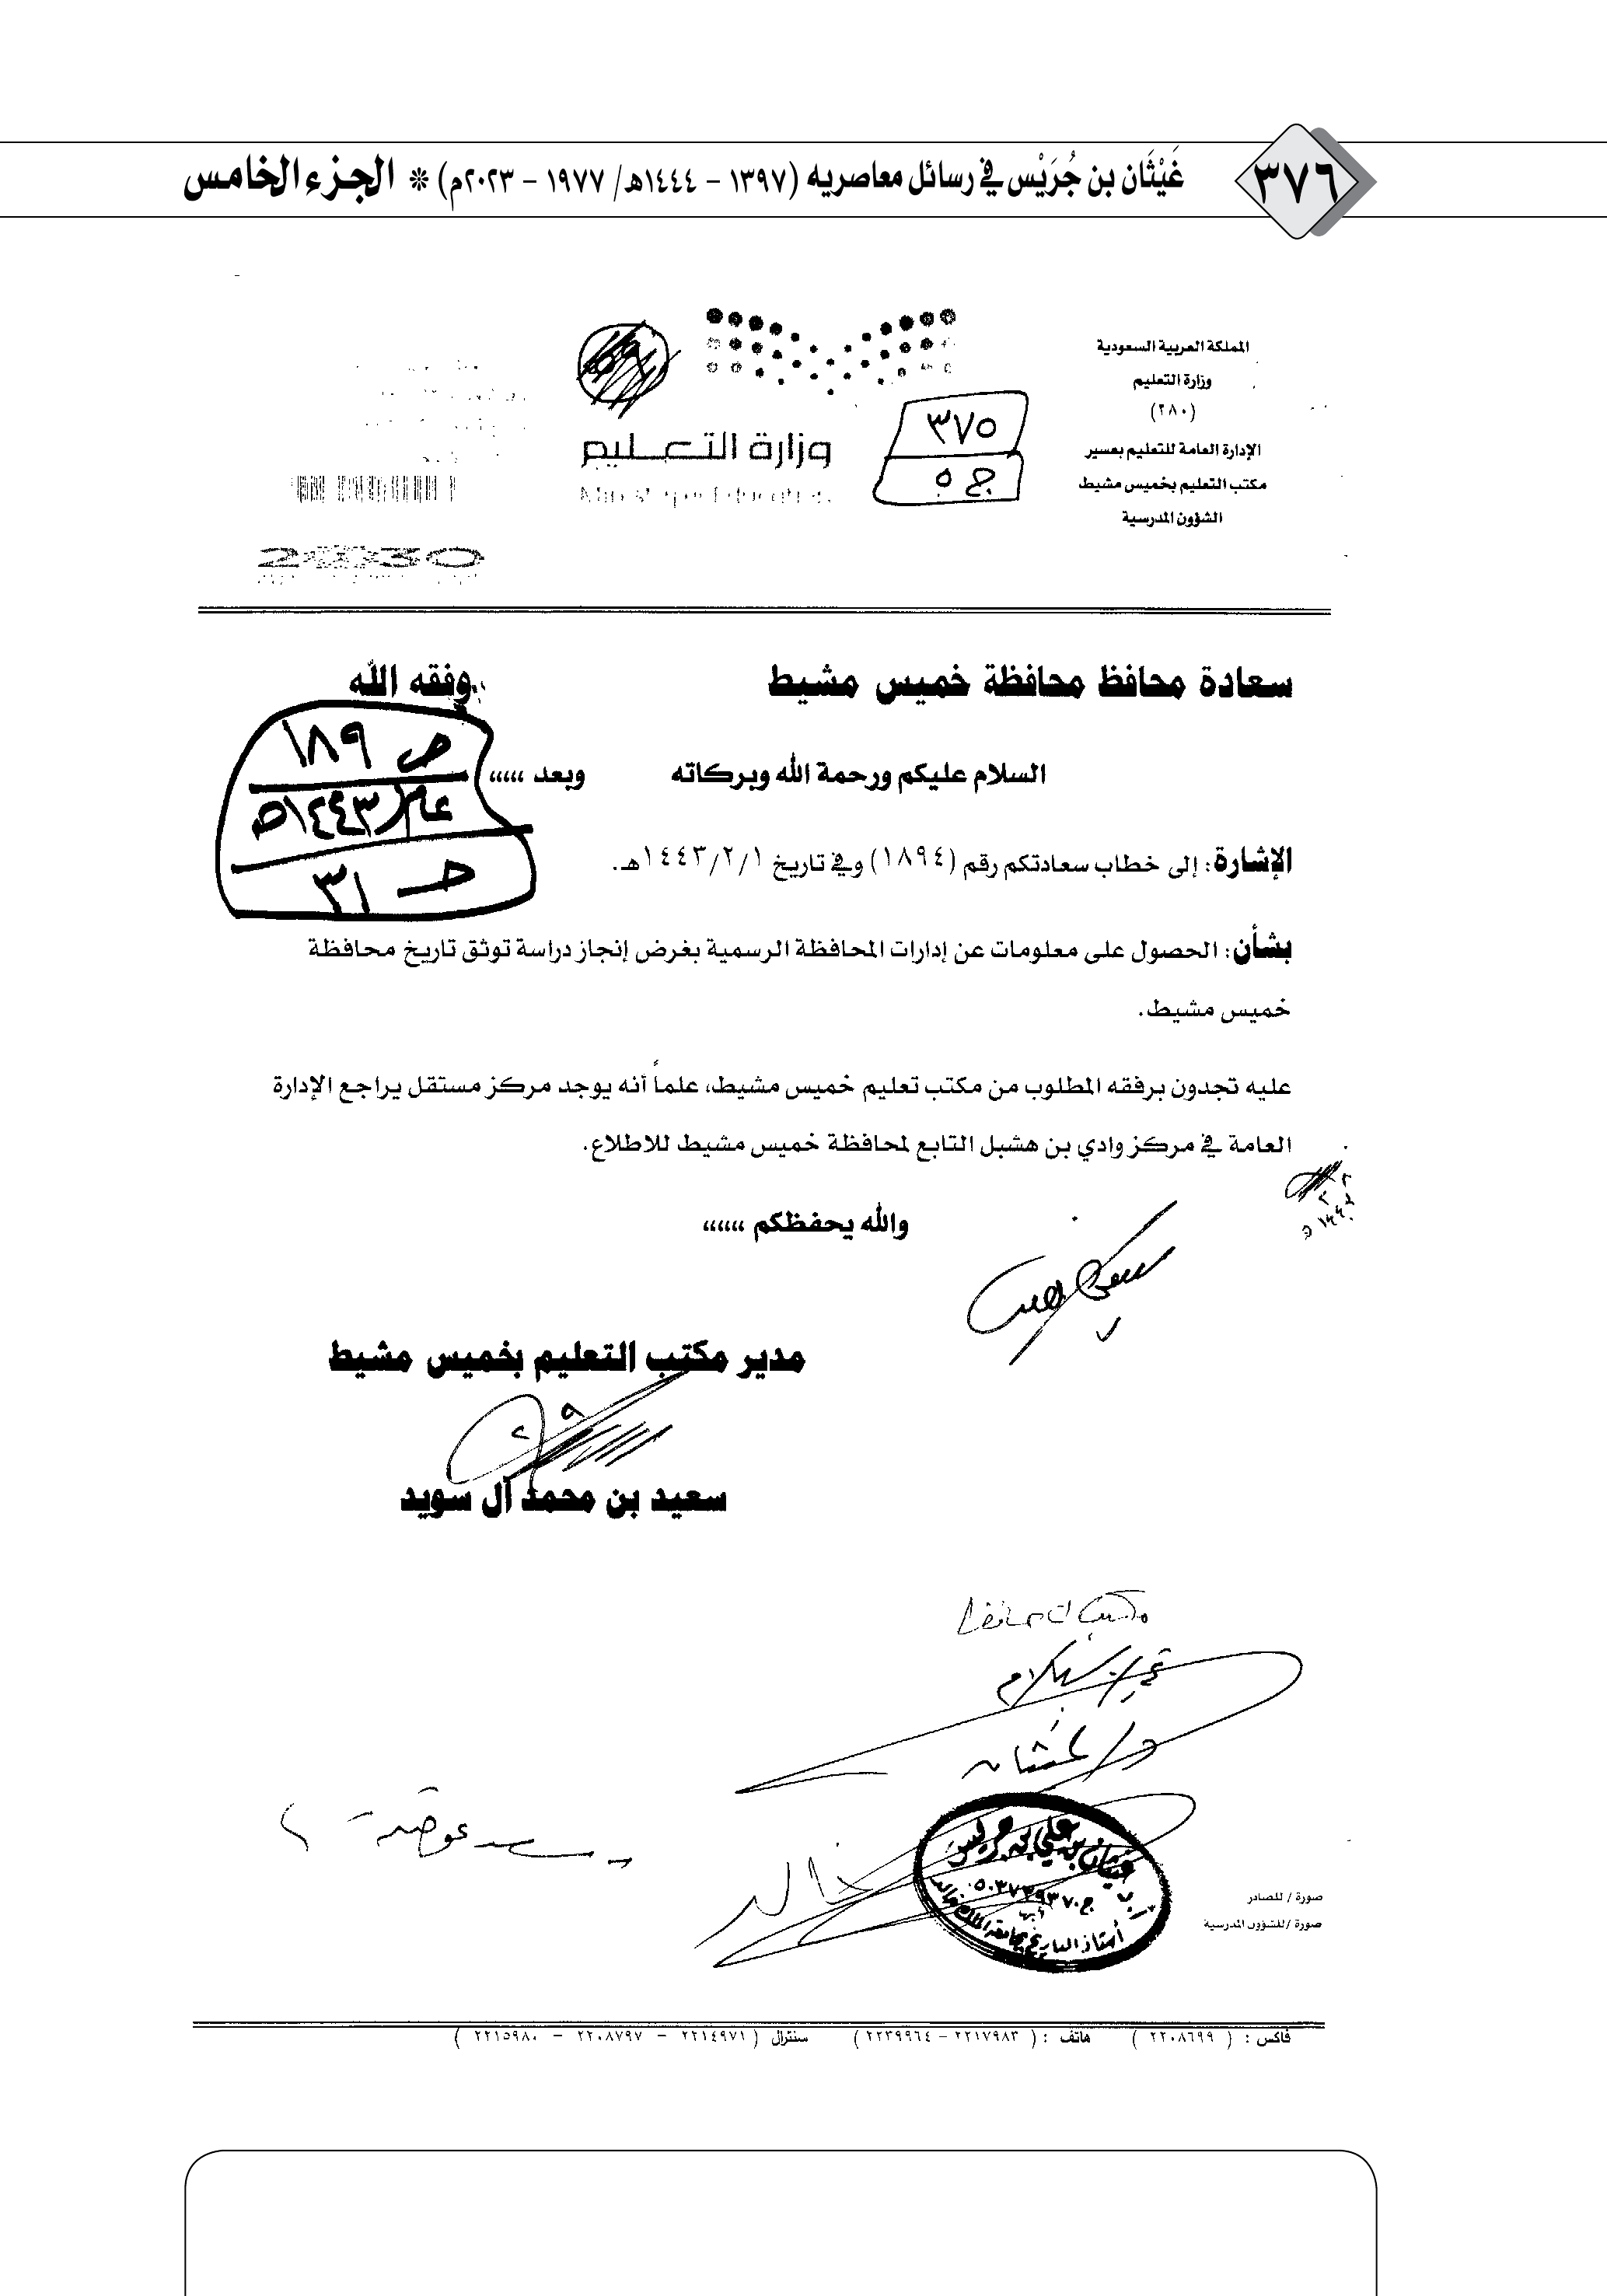 ٣٧٦
غَيْثَان بن جُرَيْس في رسائل معاصريه (١٣٩٧ – ١٤٤٤هـ/ ١٩٧٧ – ٢٠٢٣م) ❊ الجزء الخامس
المملكة العربية السعودية
وزارة التعليم
(٢٨٠)
الإدارة العامة للتعليم بعسير
مكتب التعليم بخميس مشيط
الشؤون المدرسية
٣٧٥
ج ٥
وزارة التعليم
2030
سعادة محافظ محافظة خميس مشيط وفقه الله
السلام عليكم ورحمة الله وبركاته وبعد ،،،،،
ص ١٨٩
عام ١٤٤٣هـ
حـ ٣١
الإشارة: إلى خطاب سعادتكم رقم (١٨٩٤) وفي تاريخ ١٤٤٣/٢/١هـ.
بشأن: الحصول على معلومات عن إدارات المحافظة الرسمية بغرض إنجاز دراسة توثق تاريخ محافظة
خميس مشيط.
عليه تجدون برفقه المطلوب من مكتب تعليم خميس مشيط، علماً أنه يوجد مركز مستقل يراجع الإدارة
العامة في مركز وادي بن هشبل التابع لمحافظة خميس مشيط للاطلاع.
والله يحفظكم ،،،،،،
مدير مكتب التعليم بخميس مشيط
سعيد بن محمد آل سويد
غيثان بن علي بن جريس
ج ٠٥٠٣٧٣٩٣٧٠
أستاذ التاريخ بجامعة الملك خالد
صورة / للصادر
صورة /للشؤون المدرسية
فاكس : ( ٢٢٠٨٦٩٩ ) هاتف : ( ٢٢١٧٩٨٣ – ٢٢٣٩٩٦٤ ) سنترال ( ٢٢١٤٩٧١ – ٢٢٠٨٧٩٧ – ٢٢١٥٩٨٠ )